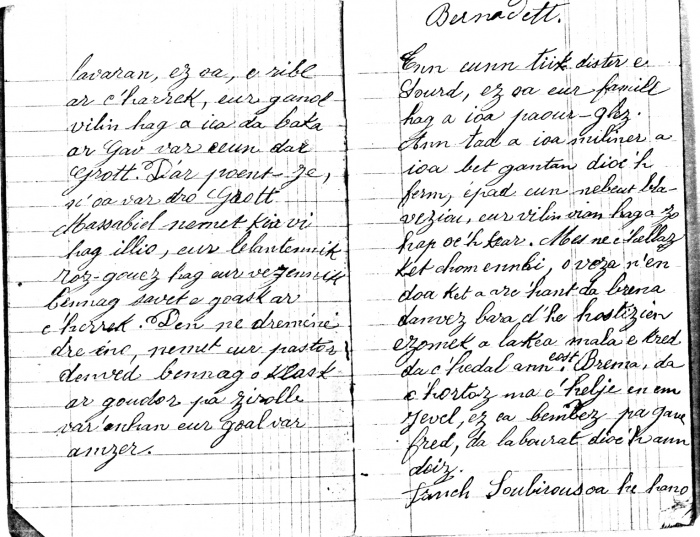 lavaran, ez oa, e ribl
ar c'harrek, eur ganol
vilin hag a iia da
ar Gav var eeun dar
Grott. D'ar poent-ze,
n'oa var dro Grott
Massabiel nemet
hag illio, eur
roz-gouez hag eur vezennik
bennag savet e goask ar
c'herrek. Den ne dremine
dre eno, nemet eur pastor
denved bennag o klask
ar goudor pa zirolle
var anhan eur goal var
amzer.
Bernadett.
Enn eunn tiik dister e
Lourd, ez oa eur famill
hag a ioa paour-glez.
Ann tad a ioa miliner a
ioa bet gantan dioc'h
ferm, epad eun nebeut bla-
veziou, eur vilin vian hag a zo
hap oc'h kear. Mes ne c'hellaz
ket chom ennhi, o veza n'en
doa ket a arc'hant da brena
danvez bara d'he hostizien
ezomek a lakea mala e kred
da c'hedal ann eost. Brema, da
c'hortoz ma c'helje en em
zevel, ez ea bemdez pa gave
fred, da labourat dioc'h ann
deiz.
Fanch Soubirous oa he hano